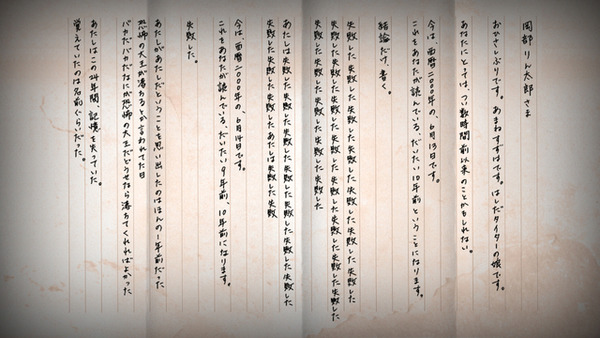 岡部りん太郎さま
おひさしぶりです。あまねすずはです。はしだタイターの娘です。
あなたにとっては、つい数時間前以来のことかもしれない。
今は、西暦二〇〇〇年の、6月13日です。
これをあなたが読んでいる、だいたい10年前ということになります。
結論だけ、書く。
失敗した失敗した失敗した失敗した失敗した失敗した失敗した
失敗した失敗した失敗した失敗した失敗した失敗した失敗した
失敗した失敗した失敗した失敗した失敗した
あたしは失敗した失敗した失敗した失敗した失敗した失敗した
失敗した失敗した失敗したあたしは失敗した失敗
今は、西暦二〇〇〇年の、6月14日です。
これをあなたが読んでいる、だいたい9年前、10年前になります。
失敗した。
あたしがあたしだということを思い出したのはほんの一年前だった
恐怖の大王が落ちると言われてた日
バカだバカだなにが恐怖の大王だどうせなら落ちてくれればよかった
あたしはこの24年間、記憶を失っていた。
覚えていたのは名前ぐらいだった。